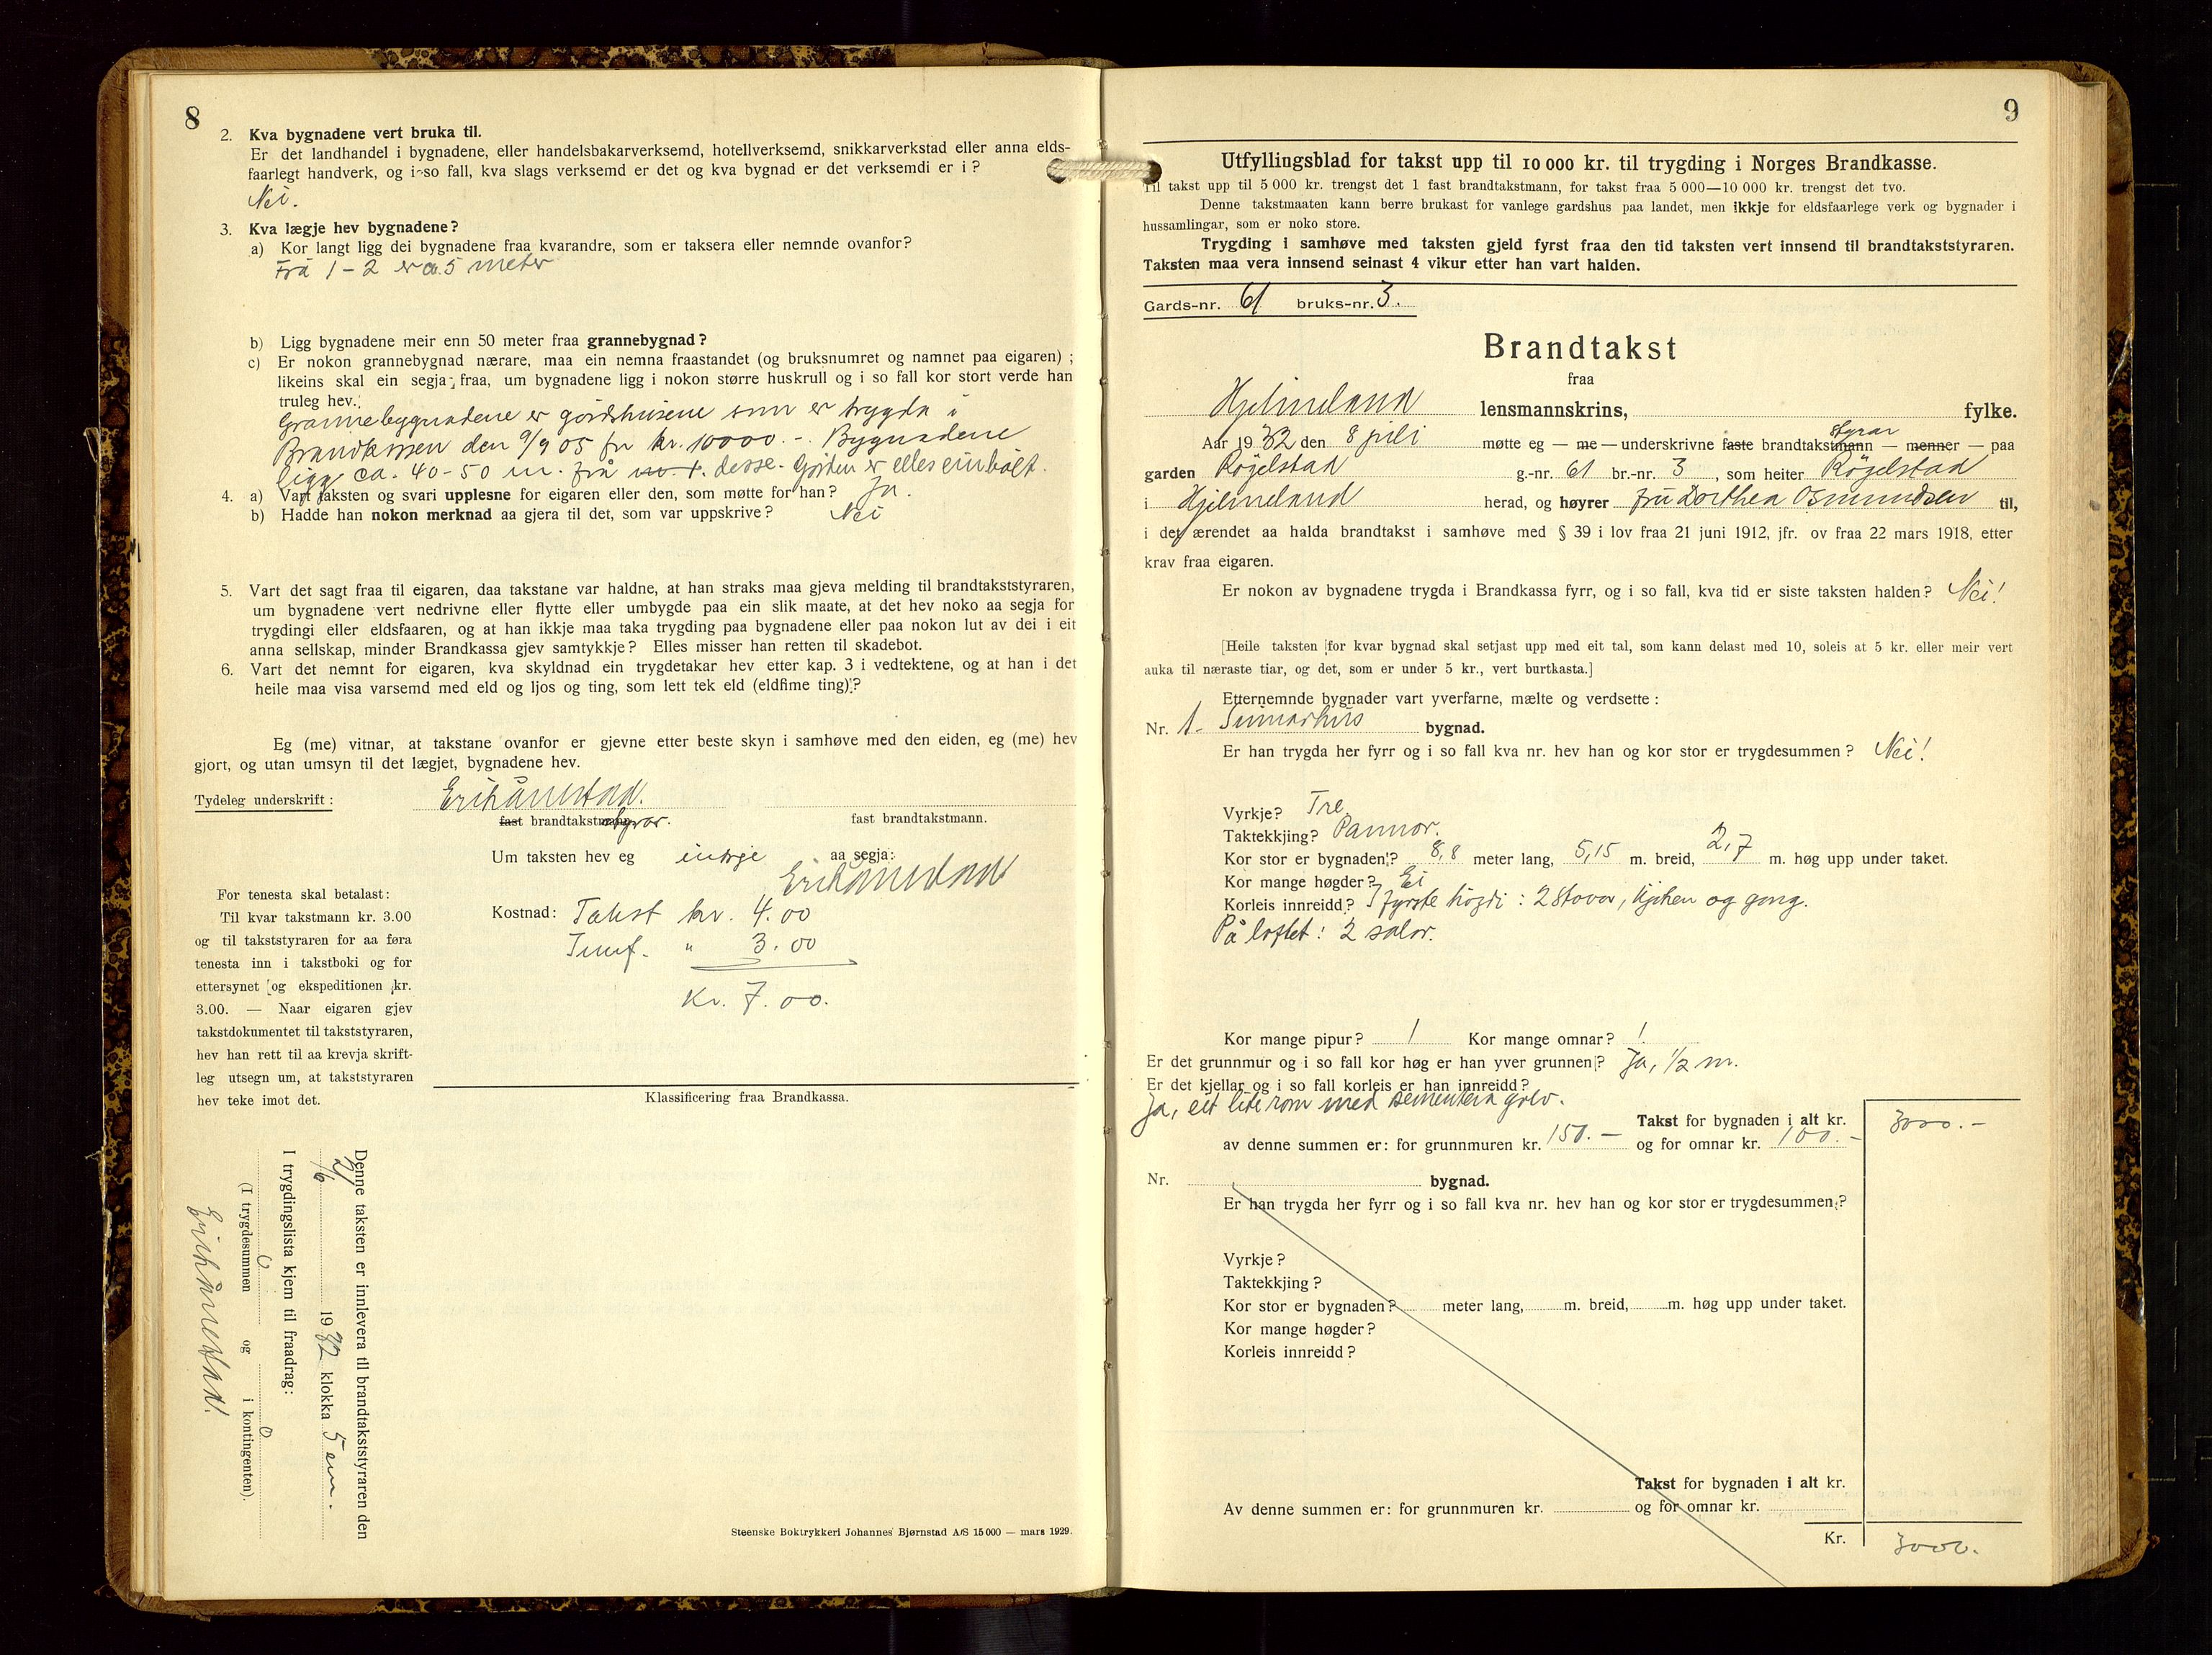 8
2. Kva bygnadene vert bruka til.
Er det landhandel i bygnadene, eller handelsbakarverksemd, hotellverksemd, snikkarverkstad eller anna elds-
faarlegt handverk, og i so fall, kva slags verksemd er det og kva bygnad er det verksemdi er i?
Nei.
3. Kva lægje hev bygnadene?
a) Kor langt ligg dei bygnadene fraa kvarandre, som er taksera eller nemnde ovanfor?
Frå 1-2 er ca. 5 meter
b) Ligg bygnadene meir enn 50 meter fraa grannebygnad?
c) Er nokon grannebygnad nærare, maa ein nemna fraastandet (og bruksnumret og namnet paa eigaren);
likeins skal ein segja fraa, um bygnadene ligg i nokon større huskrull og i so fall kor stort verde han
truleg hev.
Grannebygnadene er gardshusene som er trygda i
Brandkassen den 9/9 05 for kr. 10000.-. Bygnadene
ligg ca. 40-50 m. frå desse. Garden er elles einbølt.
4. a) Vart taksten og svari upplesne for eigaren eller den, som møtte for han? Ja.
b) Hadde han nokon merknad aa gjera til det, som var uppskrive? Nei
5. Vart det sagt fraa til eigaren, daa takstane var haldne, at han straks maa gjeva melding til brandtakststyraren,
um bygnadene vert nedrivne eller flytte eller umbygde paa ein slik maate, at det hev noko aa segja for
trygdingi eller eldsfaaren, og at han ikkje maa taka trygding paa bygnadene eller paa nokon lut av dei i eit
anna sellskap, minder Brandkassa gjev samtykkje? Elles misser han retten til skadebot.
6. Vart det nemnt for eigaren, kva skyldnad ein trygdetakar hev etter kap. 3 i vedtektene, og at han i det
heile maa visa varsemd med eld og ljos og ting, som lett tek eld (eldfime ting)?
Eg (me) vitnar, at takstane ovanfor er gjevne etter beste skyn i samhøve med den eiden, eg (me) hev
gjort, og utan umsyn til det lægjet, bygnadene hev.
Tydeleg underskrift:
fast brandtakstmann styrar. fast brandtakstmann.
Um taksten hev eg inkje aa segja:
Kostnad: Takst kr. 4.00
Innf. " 3.00
Kr. 7.00.
For tenesta skal betalast:
Til kvar takstmann kr. 3.00
og til takststyraren for aa føra
tenesta inn i takstboki og for
ettersynet og ekspeditionen kr.
3.00. — Naar eigaren gjev
takstdokumentet til takststyraren,
hev han rett til aa krevja skrift-
leg utsegn um, at takststyraren
hev teke imot det.
Klassificering fraa Brandkassa.
Denne taksten er innlevera til brandtakststyraren den
1932 klokka 5 em.
I trygdingslista kjem til fraadrag:
(I trygdesummen 0 og 0 i kontingenten).
Steenske Boktrykkeri Johannes Bjørnstad A/S 15 000 — mars 1929.
9
Utfyllingsblad for takst upp til 10 000 kr. til trygding i Norges Brandkasse.
Til takst upp til 5 000 kr. trengst det 1 fast brandtakstmann, for takst fraa 5 000—10 000 kr. trengst det tvo.
Denne takstmaaten kann berre brukast for vanlege gardshus paa landet, men ikkje for eldsfaarlege verk og bygnader i
hussamlingar, som er noko store.
Trygding i samhøve med taksten gjeld fyrst fraa den tid taksten vert innsend til brandtakststyraren.
Taksten maa vera innsend seinast 4 vikur etter han vart halden.
Gards-nr. 61 bruks-nr. 3.
Brandtakst
fraa
Hjelmeland lensmannskrins, fylke.
Aar 1932 den 8 juli møtte eg — me — underskrivne faste brandtakstmann styrar — menner — paa
garden Røgelstad g.-nr. 61 br.-nr. 3, som heiter Røgelstad
i Hjelmeland herad, og høyrer fru Dorthea Osmundsen til,
i det ærendet aa halda brandtakst i samhøve med § 39 i lov fraa 21 juni 1912, jfr. ov fraa 22 mars 1918, etter
krav fraa eigaren.
Er nokon av bygnadene trygda i Brandkassa fyrr, og i so fall, kva tid er siste taksten halden? Nei!
[Heile taksten for kvar bygnad skal setjast upp med eit tal, som kann delast med 10, soleis at 5 kr. eller meir vert
auka til næraste tiar, og det, som er under 5 kr., vert burtkasta.]
Etternemnde bygnader vart yverfarne, mælte og verdsette:
Nr. 1. Sumarhus bygnad.
Er han trygda her fyrr og i so fall kva nr. hev han og kor stor er trygdesummen? Nei!
Vyrkje? Tre
Taktekkjing? Pannor.
Kor stor er bygnaden? 8,8 meter lang, 5,15 m. breid, 2,7 m. høg upp under taket.
Kor mange høgder? Ei
Korleis innreidd? I fyrste høgdi: 2 stover, kjøken og gong.
På loftet: 2 salar.
Kor mange pipur? 1 Kor mange omnar? 1
Er det grunnmur og i so fall kor høg er han yver grunnen? Ja, 1/2 m.
Er det kjellar og i so fall korleis er han innreidd?
Ja, eit lite rom med sementera golv.
Takst for bygnaden i alt kr. 3000.-
av denne summen er: for grunnmuren kr. 150.- og for omnar kr. 100.-
Nr. bygnad.
Er han trygda her fyrr og i so fall kva nr. hev han og kor stor er trygdesummen?
Vyrkje?
Taktekkjing?
Kor stor er bygnaden? meter lang, m. breid, m. høg upp under taket.
Kor mange høgder?
Korleis innreidd?
Takst for bygnaden i alt kr.
Av denne summen er: for grunnmuren kr. og for omnar kr.
Kr. 3000.